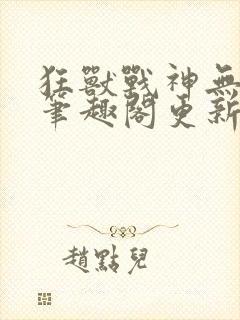 狂獸戰神無
筆趣閣更新
趙點兒